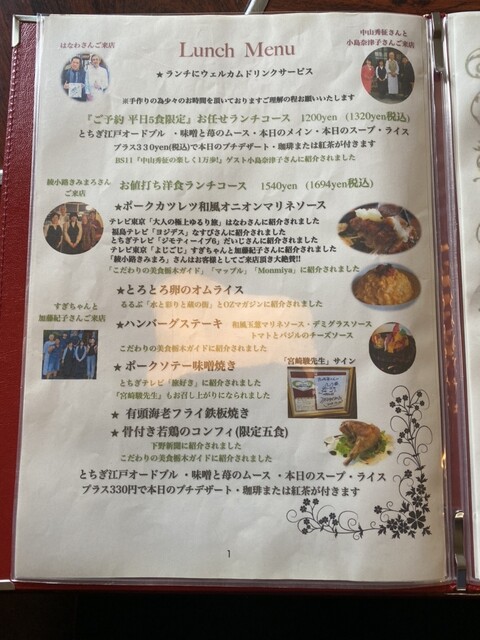 はなわさんご来店
Lunch Menu
中山秀征さんと
小島奈津子さんご来店
★ランチにウェルカムドリンクサービス
※手作りの為少々のお時間を頂いておりますご理解の程お願いいたします
『ご予約 平日5食限定』お任せランチコース 1200yen (1320yen税込)
とちぎ江戸オードブル ・味噌と苺のムース・本日のメイン・本日のスープ・ライス
プラス330yen(税込)で本日のプチデザート・珈琲または紅茶が付きます
BS11「中山秀征の楽しく1万歩!」ゲスト小島奈津子さんに紹介されました
綾小路きみまろさん
ご来店
お値打ち洋食ランチコース 1540yen (1694yen税込)
★ポークカツレツ和風オニオンマリネソース
テレビ東京「大人の極上ゆるり旅」はなわさんに紹介されました
福島テレビ「ヨジデス」なすびさんに紹介されました
とちぎテレビ「ジモティーイブ6」だいじさんに紹介されました
テレビ東京「よじごじ」すぎちゃんと加藤紀子さんに紹介されました
「綾小路きみまろ」さんはお客さんとしてご来店頂き大絶賛!!
「こだわりの美食栃木ガイド」「マップル」「Monmiya」に紹介されました
★とろとろ卵のオムライス
るるぶ「水と彩りと蔵の街」とOZマガジンに紹介されました
すぎちゃんと
加藤紀子さんご来店
★ハンバーグステーキ 和風玉葱マリネソース・デミグラスソース
トマトとバジルのチーズソース
こだわりの美食栃木ガイドに紹介されました
★ポークソテー味噌焼き
「宮崎駿先生」サイン
とちぎテレビ「旅好き」に紹介されました
「宮崎駿先生」もお召し上がりになられました
★ 有頭海老フライ鉄板焼き
★ 骨付き若鶏のコンフィ(限定五食)
下野新聞に紹介されました
こだわりの美食栃木ガイドに紹介されました
とちぎ江戸オードブル ・味噌と苺のムース ・本日のスープ・ライス
プラス330円で本日のプチデザート・珈琲または紅茶が付きます
1